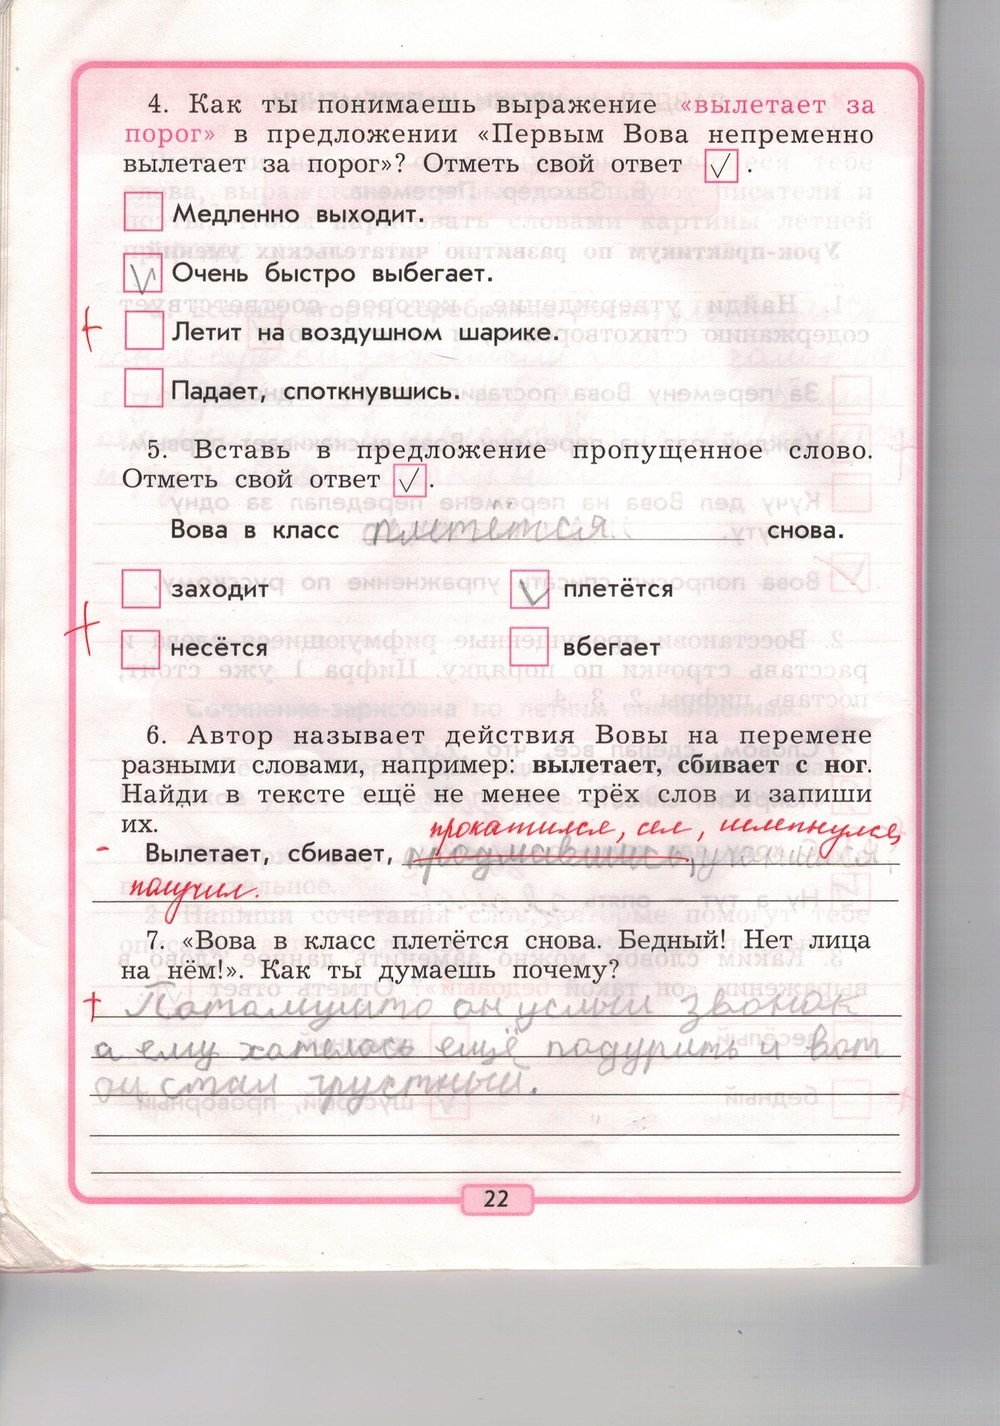 4. Как ты понимаешь выражение «вылетает за
порог» в предложении «Первым Вова непременно
вылетает за порог»? Отметь свой ответ ✓.
Медленно выходит.
Очень быстро выбегает.
Летит на воздушном шарике.
Падает, споткнувшись.
5. Вставь в предложение пропущенное слово.
Отметь свой ответ ✓.
Вова в класс плетётся снова.
заходит плетётся
несётся вбегает
6. Автор называет действия Вовы на перемене
разными словами, например: вылетает, сбивает с ног.
Найди в тексте ещё не менее трёх слов и запиши
их.
прокатился, сел, шлепнулся,
Вылетает, сбивает,
получил.
7. «Вова в класс плетётся снова. Бедный! Нет лица
на нём!». Как ты думаешь почему?
Потамушто он услыш звонок
а ему хателась ещё падурить и вот
он стал грустный.
22